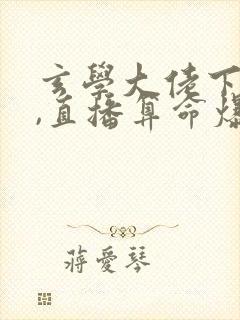 玄學大佬下
,直播算命爆
蔣愛琴